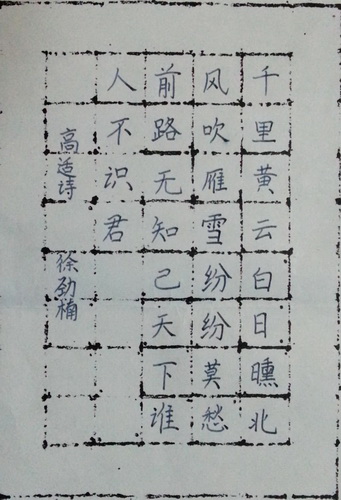 千里黄云白日曛北
风吹雁雪纷纷莫愁
前路无知己天下谁
人不识君
高适诗
徐劲楠